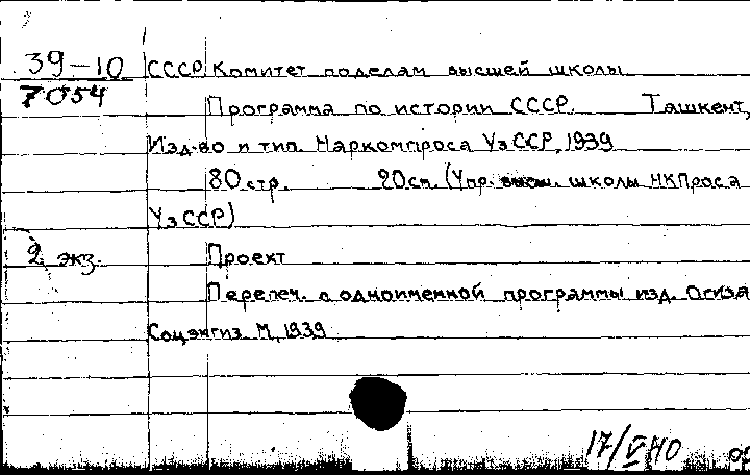 39-10 СССР. Комитет поделам высшей школы
7054
Программа по истории СССР. Ташкент,
Изд-во и тип. Наркомпроса УзССР, 1939
80 стр. 20 см. (Упр. высш. школы НКПроса
УзССР)
2 экз. Проект
Перепеч. с одноименной программы изд. Огиза
Соцэкгиз. М, 1939